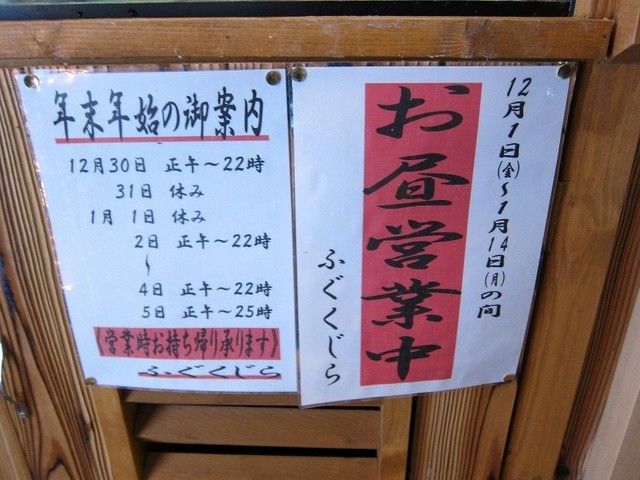 年末年始の御案内
12月30日 正午～22時
31日 休み
1月 1日 休み
2日 正午～22時
～
4日 正午～22時
5日 正午～25時
《営業時お持ち帰り承ります》
ふぐくじら
12月1日(金)～1月14日(月)の間
お昼営業中
ふぐくじら